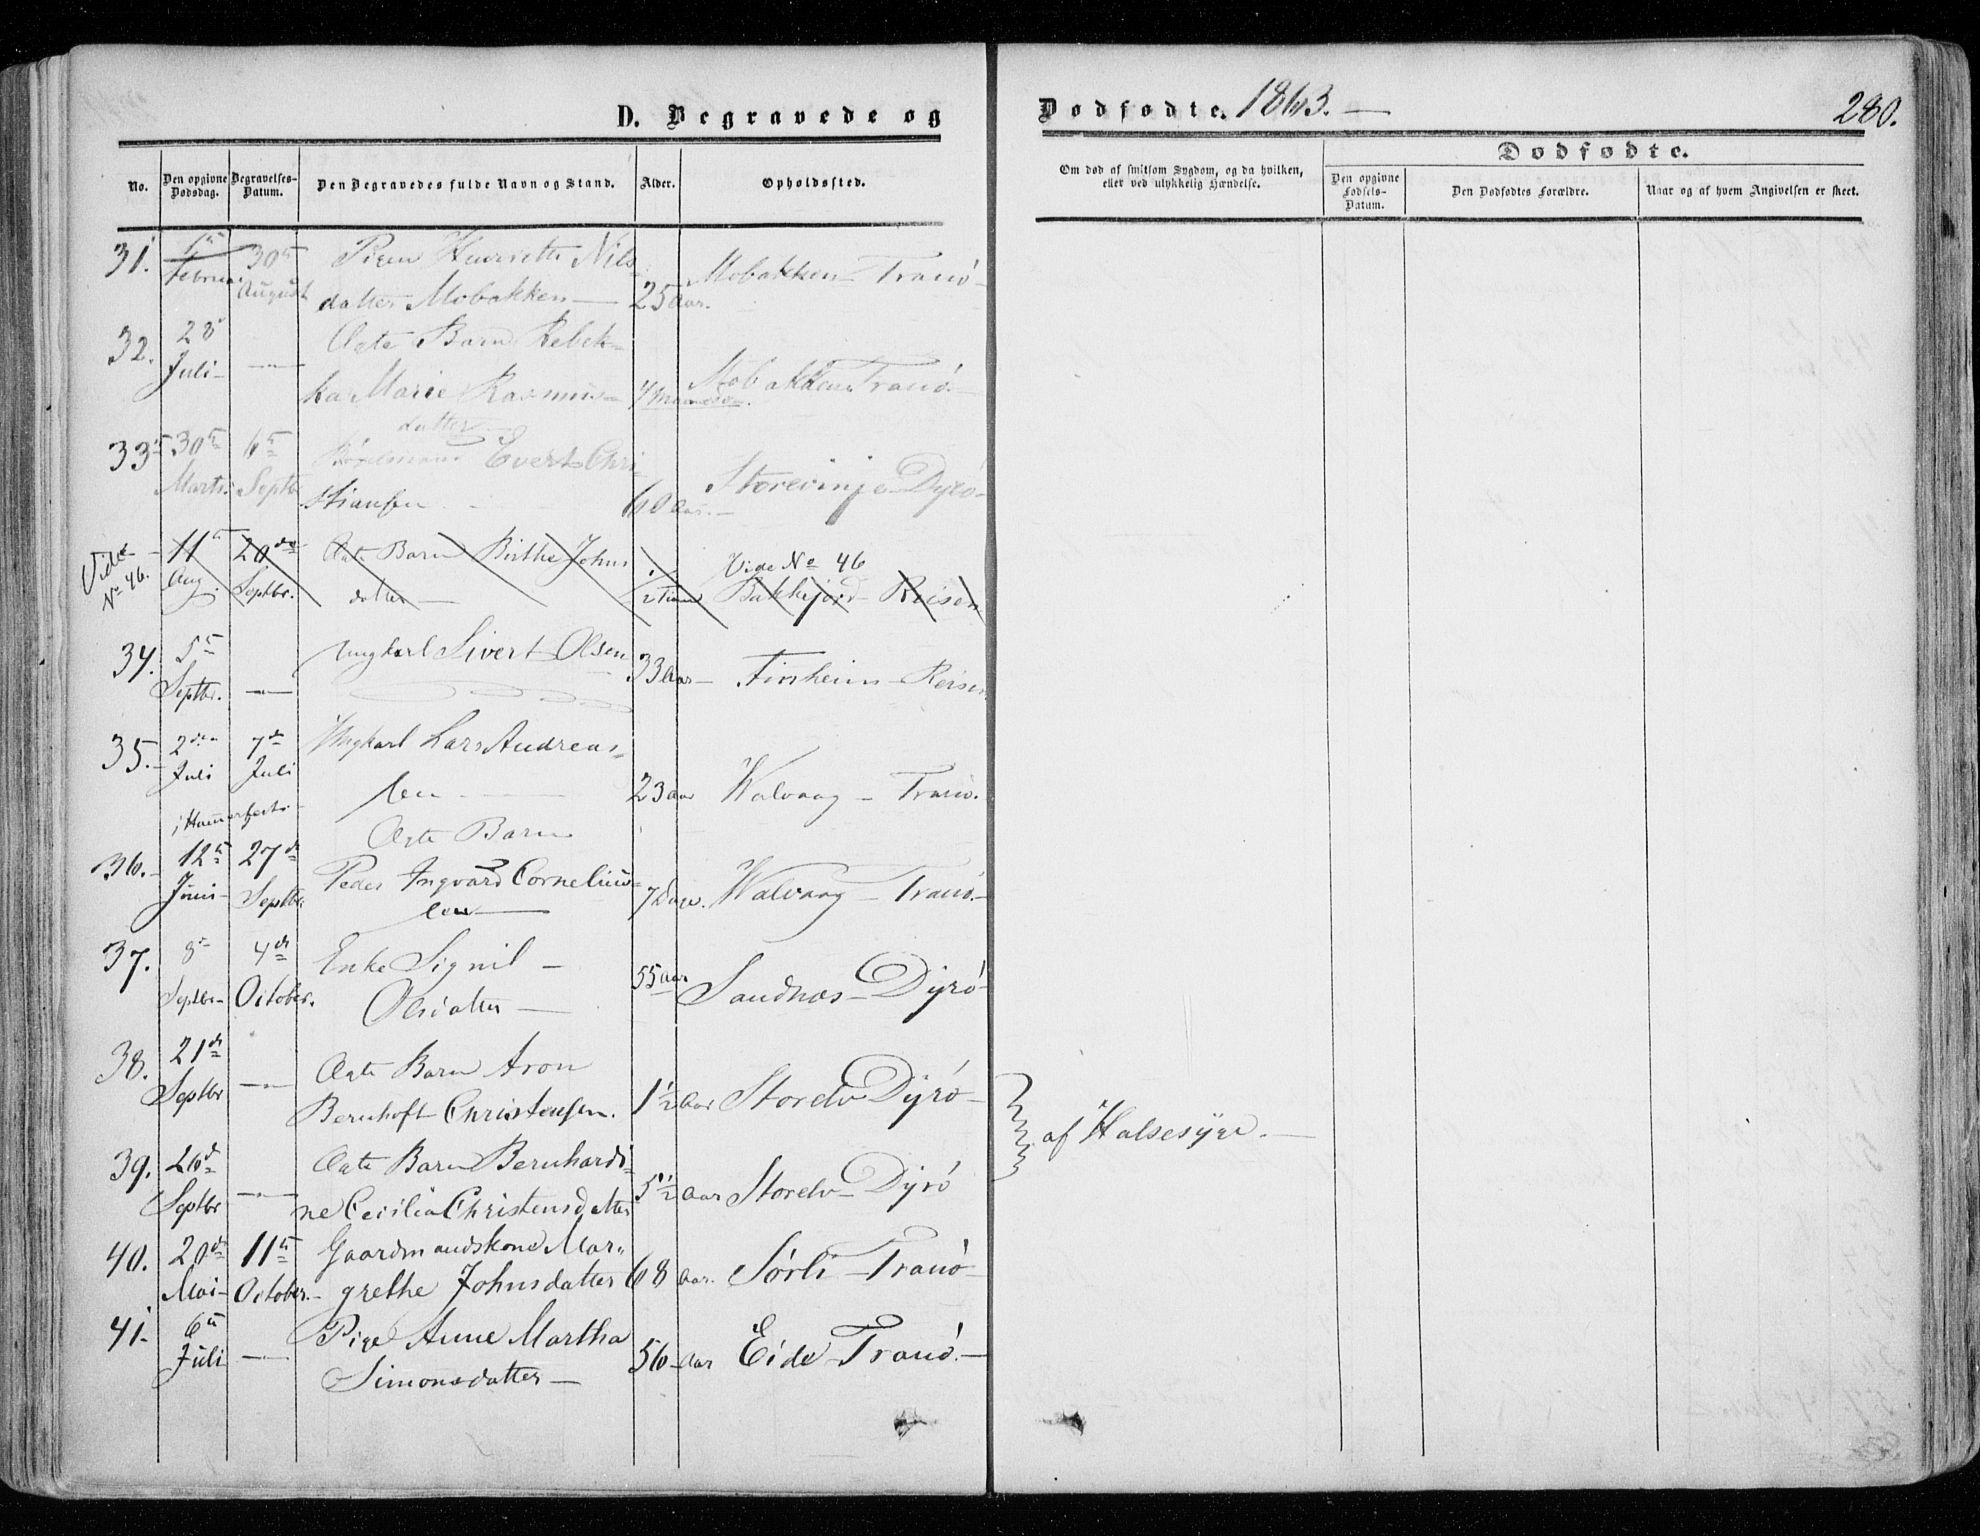 D. Begravede og
Dødfødte. 1863. —
280.
No.
Den opgivne Dødsdag.
Begravelses-Datum.
Den Begravedes fulde Navn og Stand.
Alder.
Opholdssted.
Om død af smitsom Sygdom, og da hvilken,
eller ved ulykkelig Hændelse.
Dødfødte.
Den opgivne Fødsels-Datum.
Den Dødfødtes Forældre.
Naar og af hvem Angivelsen er skeet.
31. Februar 30te August Pigen Henriette Nils-
datter Mobakken — 25 Aar. Mobakken Tranö
32. 28 Juli — Ægte Barn Rebek-
ka Marie Rasmus-
datter 4 Maaneder. Mobakken Tranö —
33. 30te Marts 6te Septbr Evert Chri-
stiansen 60 Aar. Storevinje Dyrö
Vide No 46. 11te Aug. 20de Septbr. Ægte Barn Birthe Johns
datter — 1/2 Time Vide No 46
Bakkejord Reisen
34. 5te Septbr. — Ungkarl Sivert Olsen 33 Aar — Finheim Reisen
35. 2den Juli 7de Juli Ungkarl Lars Andreas-
sen 23 Aar Walvaag — Tranö.
i Hammerfest
Ægte Barn
36. 12te Juni 27de Septbr. Peder Ingvard Cornelius-
sen — 7 Dage. Walvaag — Tranö.
37. 8de Septbr. 4de October. Enke Signil —
Olsdatter — 55 Aar Sandnæs Dyrö
38. 21de Septbr — Ægte Barn Aron
Bernhoft Christensen. 1 1/2 Aar Storelv Dyrö —
af Halsesyge. —
39. 26de Septbr — Ægte Barn Bernhardi-
ne Cecilia Christensdatter 5 1/2 Aar Storelv Dyrö
40. 20de Mai 11te October. Gaardmandskone Mar-
grethe Johnsdatter 68 Aar. Sörli Tranö
41. 6te Juli — Pige Anne Martha
Simonsdatter — 56 Aar Eide Tranö. —